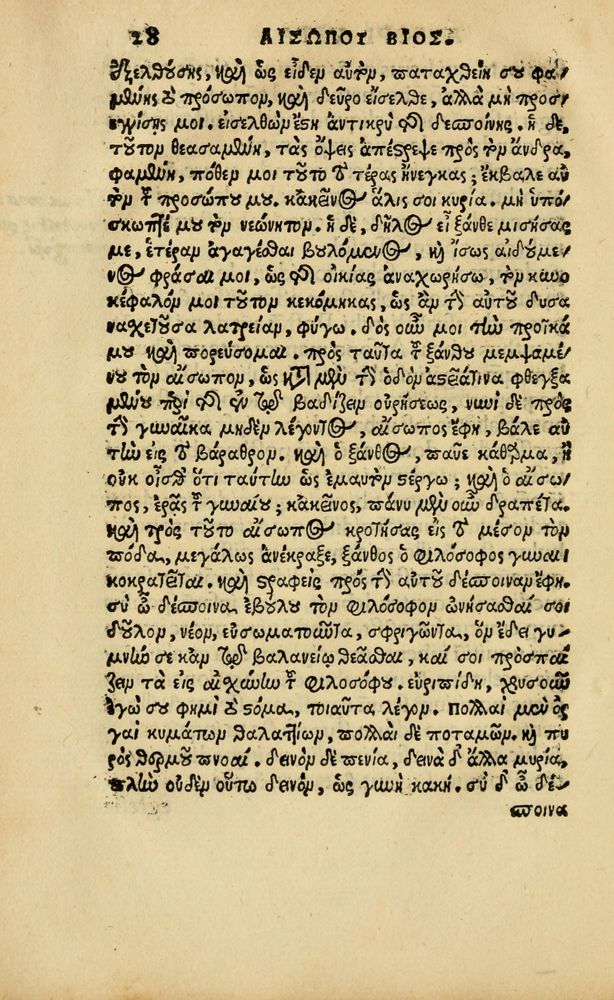 28 ΑΙΣΩΠΟΥ ΒΙΟΣ.
ἐξελθούσης, καὶ ὡς εἶδεν αὐτὸν, παταχθείη σου φα/
μένης τὸ πρόσωπον, καὶ δεῦρο εἴσελθε, ἀλλὰ μὴ προσ
εγγίσῃς μοι. εἰσελθὼν ἔστη ἀντικρὺ τῆς δεσποίνης. ἡ δὲ,
τοῦτον θεασαμένη, τὰς ὄψεις ἀπέστρεψε πρὸς τὸν ἄνδρα,
φαμένη, πόθεν μοι τοῦτο τὸ τέρας ἤνεγκας; ἔκβαλε αὐ
τὸν τοῦ προσώπου μου. κἀκεῖνος ἅλις σοι κυρία. μὴ ὑπό/
σκωπτέ μου τὸν νεώνητον. ἡ δὲ, δῆλος εἶ ξάνθε μισήσας
με, ἑτέραν ἀγαγέσθαι βουλόμενος, καὶ ἴσως αἰδούμε/
νος φράσαι μοι, ὡς τῆς οἰκίας ἀναχωρήσω, τὸν κυνο
κέφαλόν μοι τοῦτον κεκόμηκας, ὡς ἂν τὴν αὐτοῦ δυσα
νασχετοῦσα λατρείαν, φύγω. δὸς οὖν μοι τὴν προῖκά
μου καὶ πορεύσομαι. πρὸς ταῦτα τοῦ ξάνθου μεμψαμέ/
νου τὸν αἴσωπον, ὡς κατὰ μὲν τὴν ὁδὸν ἀστεῖάτινα φθεγξα
μένου περὶ τῆς ἐν τῷ βαδίζειν οὐρήσεως, νυνὶ δὲ πρὸς
τὴν γυναῖκα μηδὲν λέγοντος, αἴσωπος ἔφη, βάλε αὐ
τὴν εἰς τὸ βάραθρον. καὶ ὁ ξάνθος, παῦε κάθαρμα, ἢ
οὐκ οἶσθα ὅτι ταύτην ὡς ἐμαυτὸν στέργω; καὶ ὁ αἴσω/
πος, ἐρᾷς τοῦ γυναίου; κἀκεῖνος, πάνυ μὲν οὖν δραπέτα.
καὶ πρὸς τοῦτο αἴσωπος κροτήσας εἰς τὸ μέσον τὸν
πόδα, μεγάλως ἀνέκραξε, ξάνθος ὁ φιλόσοφος γυναι
κοκρατεῖται. καὶ στραφεὶς πρὸς τὴν αὐτοῦ δέσποιναν ἔφη.
σὺ ὦ δέσποινα ἐβούλου τὸν φιλόσοφον ὠνήσασθαί σοι
δοῦλον, νέον, εὐσωματοῦντα, σφριγῶντα, ὃν ἔδει γυ/
μνήν σε κἀν τῷ βαλανείῳ θεᾶσθαι, καί σοι προσπαί
ζειν τὰ εἰς αἰσχύνην τοῦ φιλοσόφου. εὐριπίδη, χρυσοῦν
ἐγώ σου φημὶ τὸ στόμα, τοιαῦτα λέγον. Πολλαὶ μὲν ὀρ
γαὶ κυμάτων θαλαττίων, πολλαὶ δὲ ποταμῶν. καὶ πυ
ρὸς θερμοῦ πνοαί. δεινὸν δὲ πενία, δεινὰ δ' ἄλλα μυρία,
πλὴν οὐδὲν οὕτω δεινὸν, ὡς γυνὴ κακή. σὺ δ' ὦ δέ/
σποινα